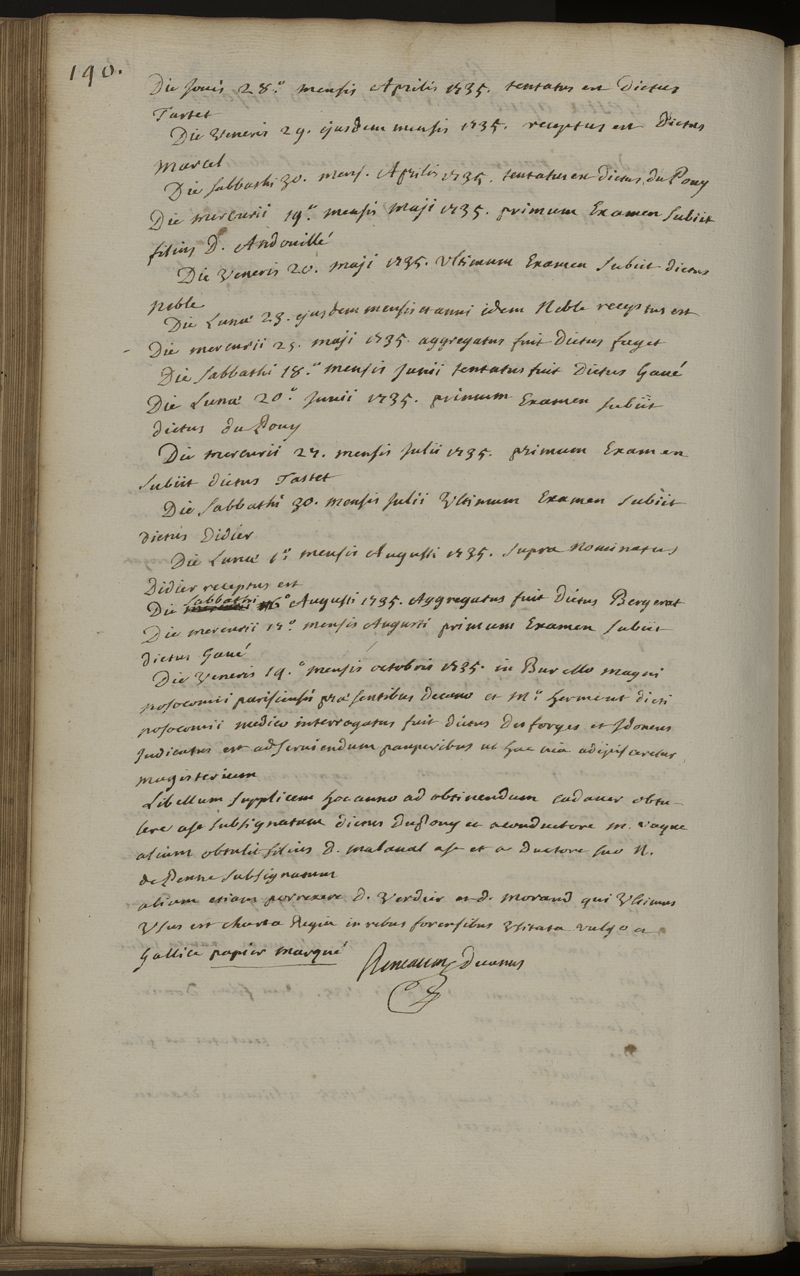 190.
Die Jovis 28.a mensis Aprilis 1735. tentatus est Dictus
Tartet
Die Veneris 29. ejusdem mensis 1735. receptus est Dictus
Marcel
Die Sabbathi 30. mens. Aprilis 1735. tentatus est dictus du Pouy
Die mercurii 19.a mensis maji 1735. primum Examen Subiit
filius D. Andouillé
Die Veneris 20. maji 1735. Ultimum Examen Subiit dictus
Noble
Die Lunae 23. ejusdem mensis et anni idem Noble receptus est
Die mercurii 25. maji 1735. aggregatus fuit Dictus
Die Sabbathi 18.a mensis Junii tentatus fuit Dictus Gaué
Die Lunae 20.a Junii 1735. primum Examen subiit
dictus du Pouy
Die mercurii 27. mensis Julii 1735. primum Examen
Subiit dictus Tastet
Die Sabbathi 30. mensis Julii Ultimum Examen Subiit
dictus Didier
Die Lunae 1.a mensis Augusti 1735. Supra Nominatus
Didier receptus est
Die Sabbathi Augusti 1735. Aggregatus fuit dictus Bergerat
Die mercurii 17.a mensis Augusti primum Examen Subiit
dictus Gaué
Die Veneris 14.a mensis octobris 1735. in Burello magni
nosocomii parisiensis praesentibus Decano et M.o Herment dicti
nosocomii medico interrogatus fuit dictus Desforges et Idoneus
Judicatus est ad serviendum pauperibus ut hac via adipisceretur
magisterium
Libellum Supplicem hoc anno ad obtinendum cadaver obtu-
lere a se subsignatum dictus DuPouy et a conductore m.
alium obtulit filius D. Malaval a se et a Ductore suo N.
de Penne subsignatum
alium etiam porrexere D. Verdier et D. Morand qui Ultimus
Usus est charta Regia in rebus forensibus Usitata vulgo a
Gallice papier marqué
Decanus